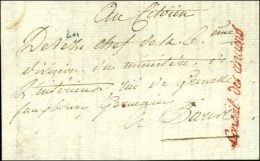 Au Citoien
chef de la 6.eme
division du ministère de
l'intérieur rue de Grenelle
faubourg Germain
à Paris